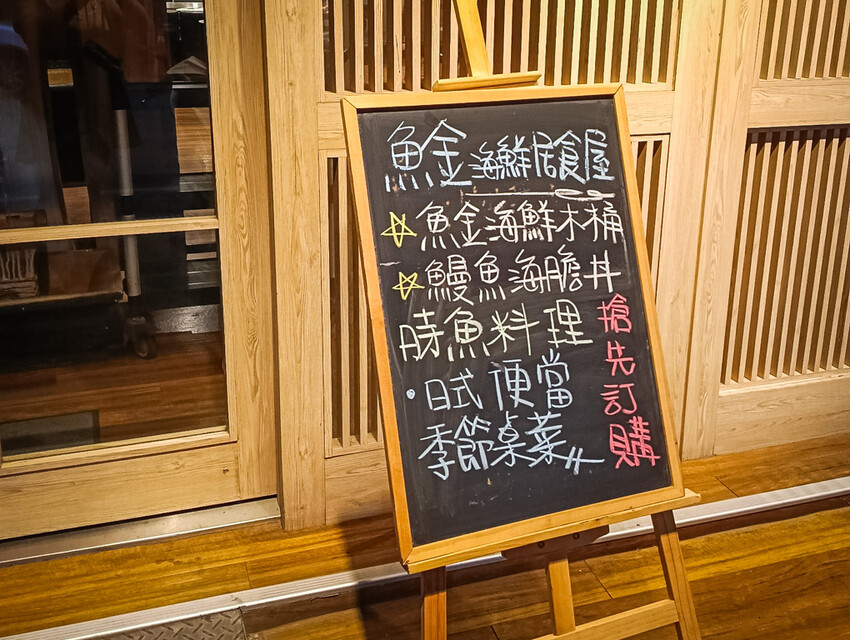 魚金海鮮居食屋
☆魚金海鮮木桶
☆鰻魚海膽丼
時魚料理
·日式便當
季節桌菜
搶先訂購